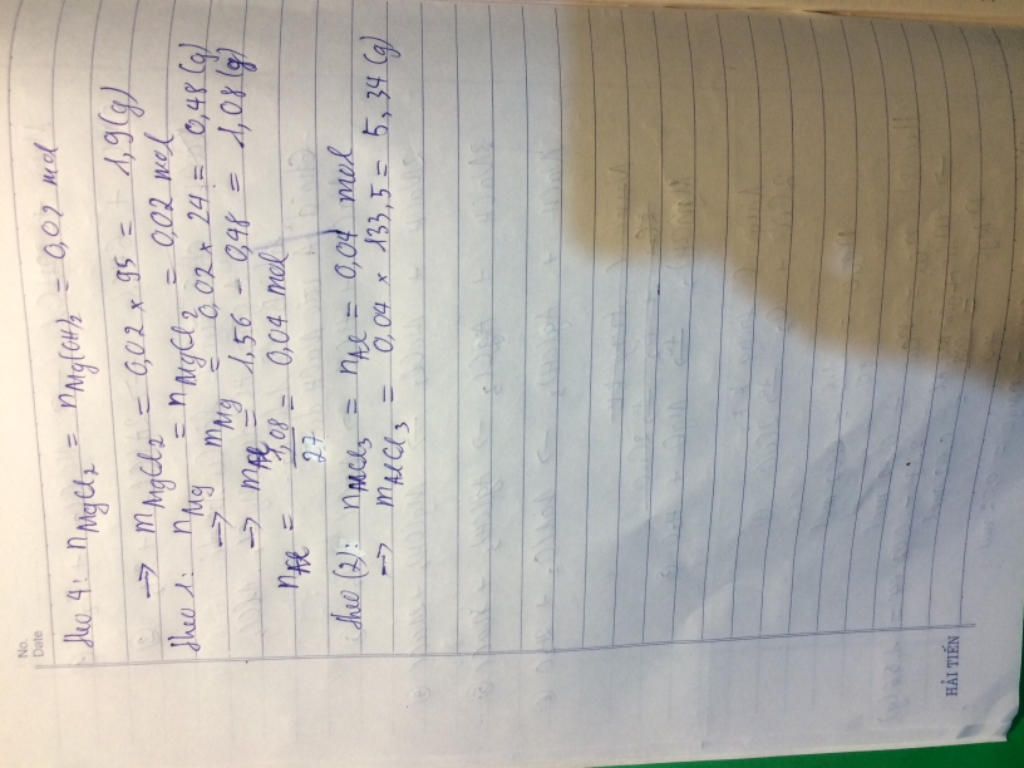 No.
Date
theo 4: nMgCl2 = nMg(OH)2 = 0,02 mol
→ mMgCl2 = 0,02 x 95 = 1,9 (g)
theo 1: nMg = nMgCl2 = 0,02 mol
→ mMg = 0,02 x 24 = 0,48 (g)
→ mAl = 1,56 - 0,48 = 1,08 (g)
nAl = 1,08 / 27 = 0,04 mol
theo (2): nAlCl3 = nAl = 0,04 mol
→ mAlCl3 = 0,04 x 133,5 = 5,34 (g)
HẢI TIẾN